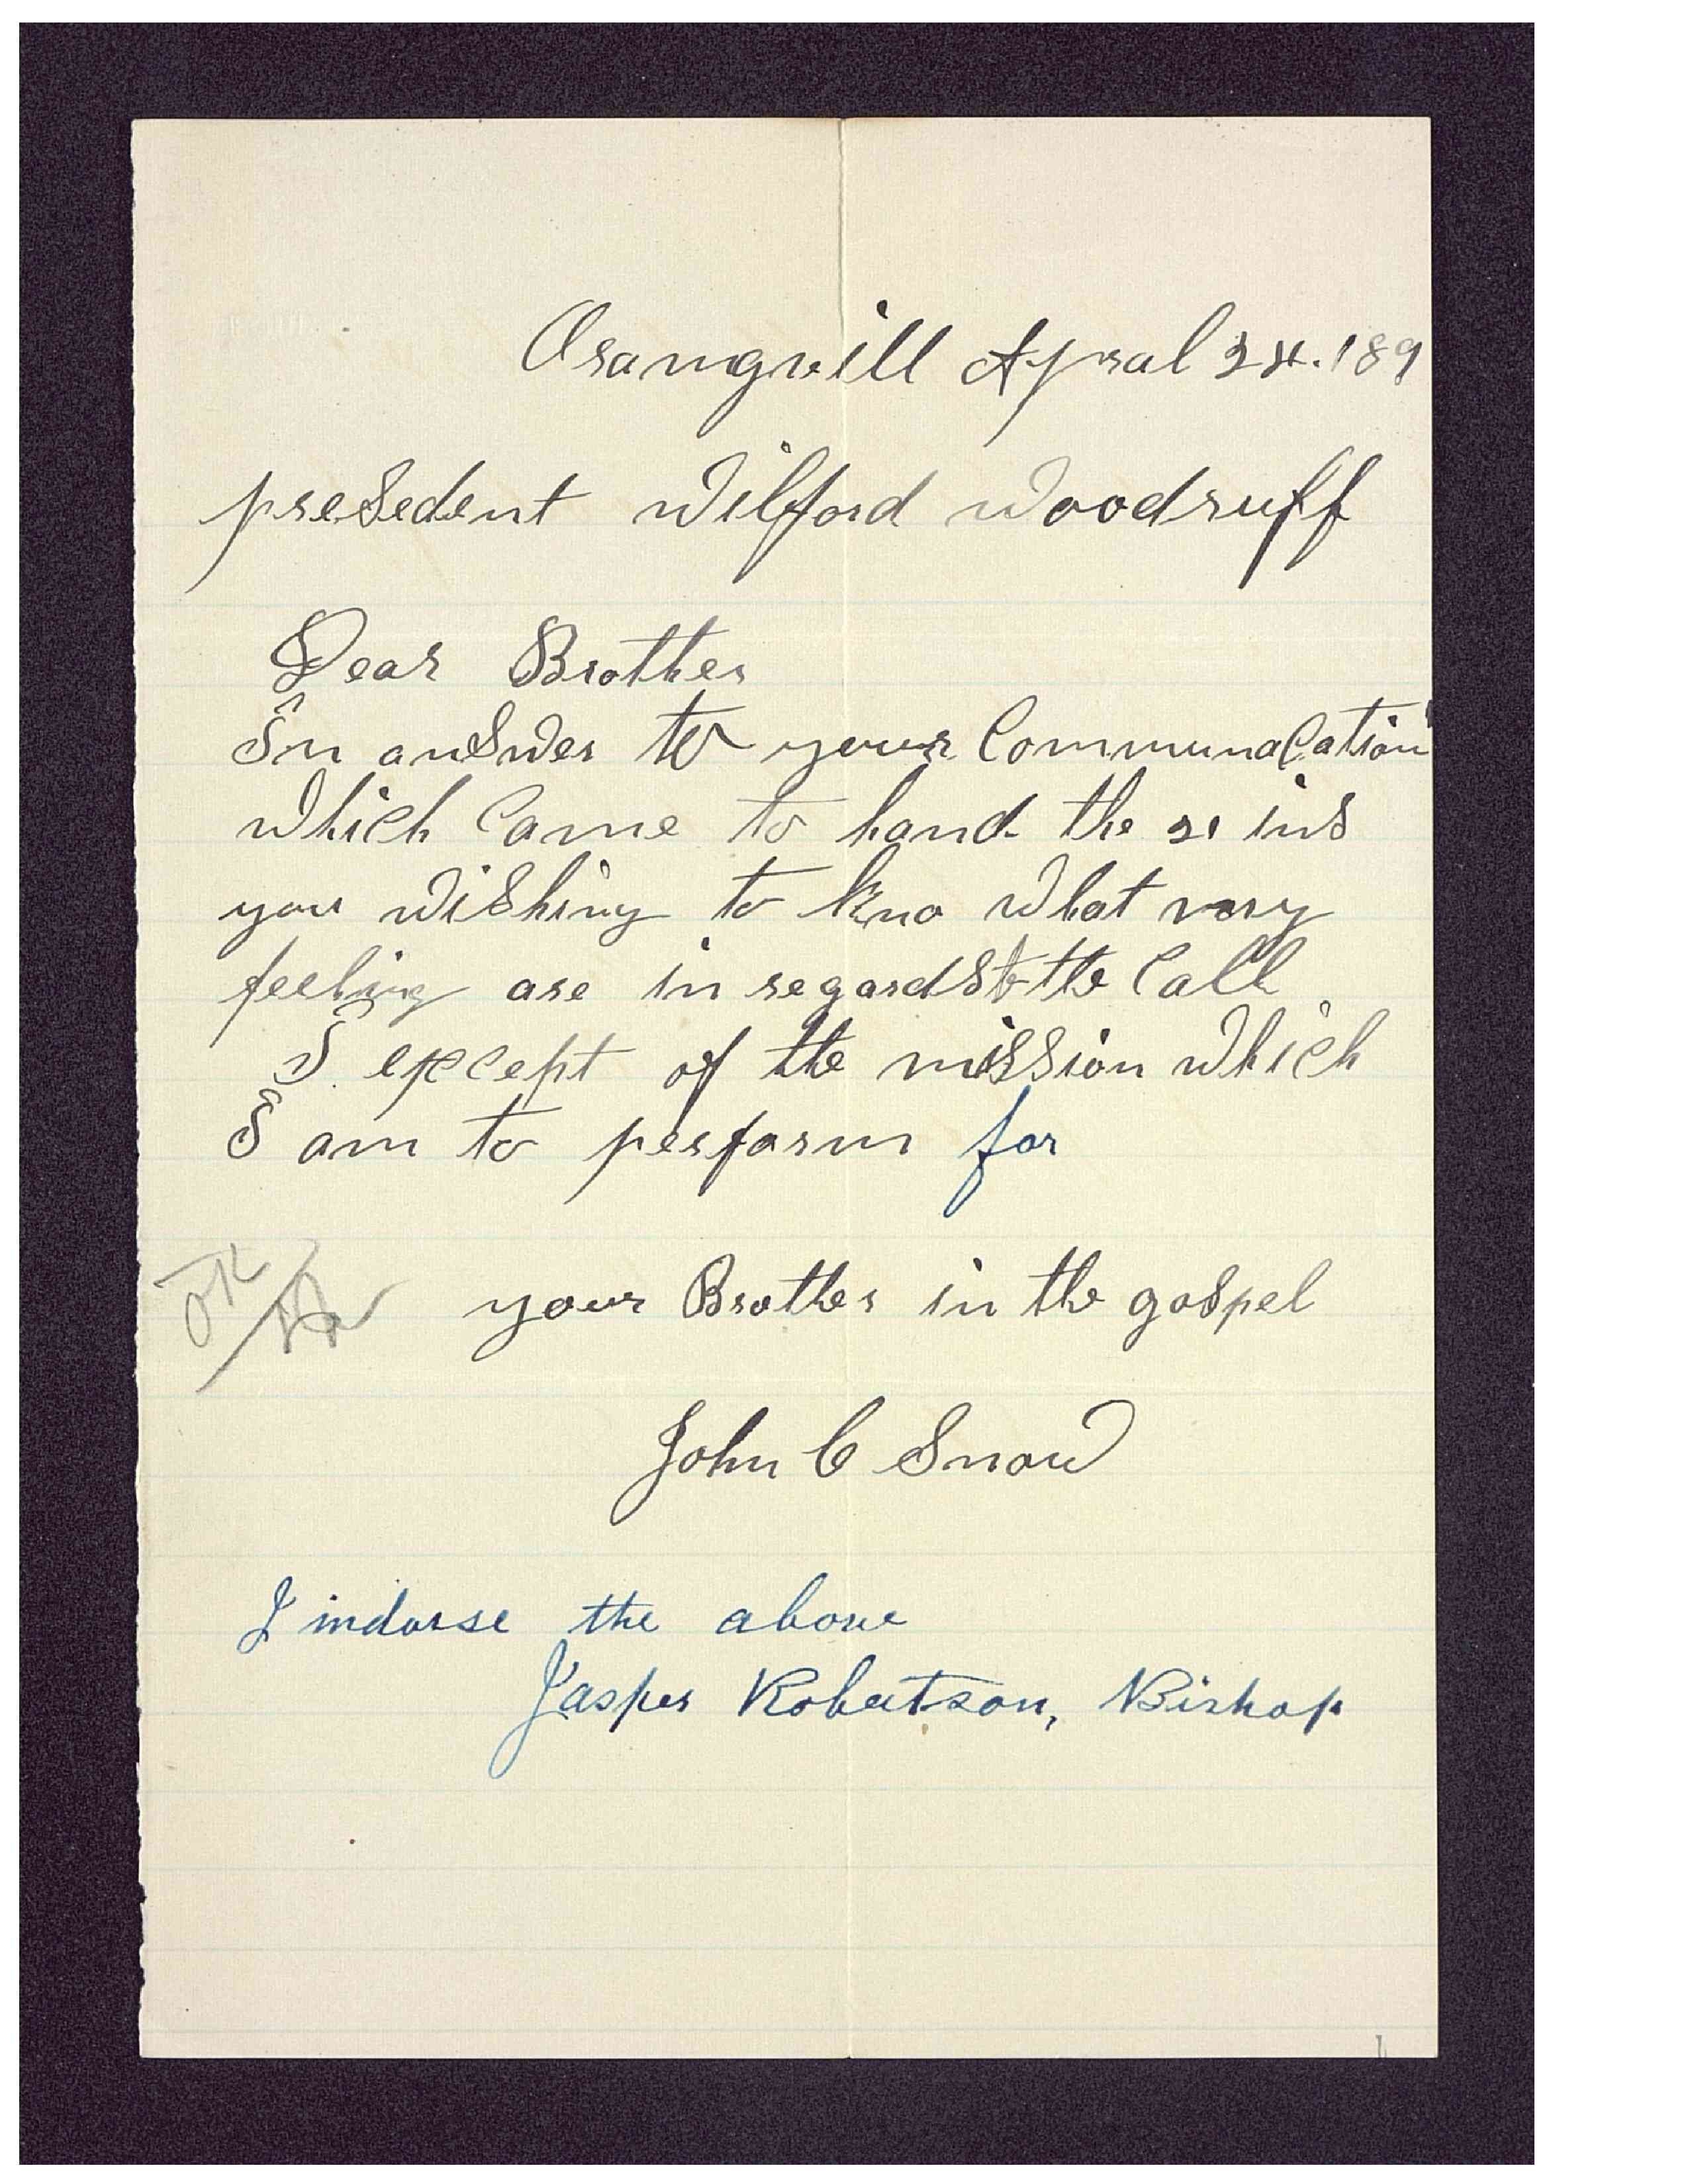 Orangvill Apral 24. 189
preSedent Wilford Woodruff
Dear Brother
In anSwer to your Communacation
Which Came to hand the 21 inS
you WiShing to Kno What my
feeling are in regardS to the Call
I except of the miSSion Which
I am to perform for
OK
your Brother in the goSpel
John C Snow
I indorse the above
Jasper Robertson, Bishop